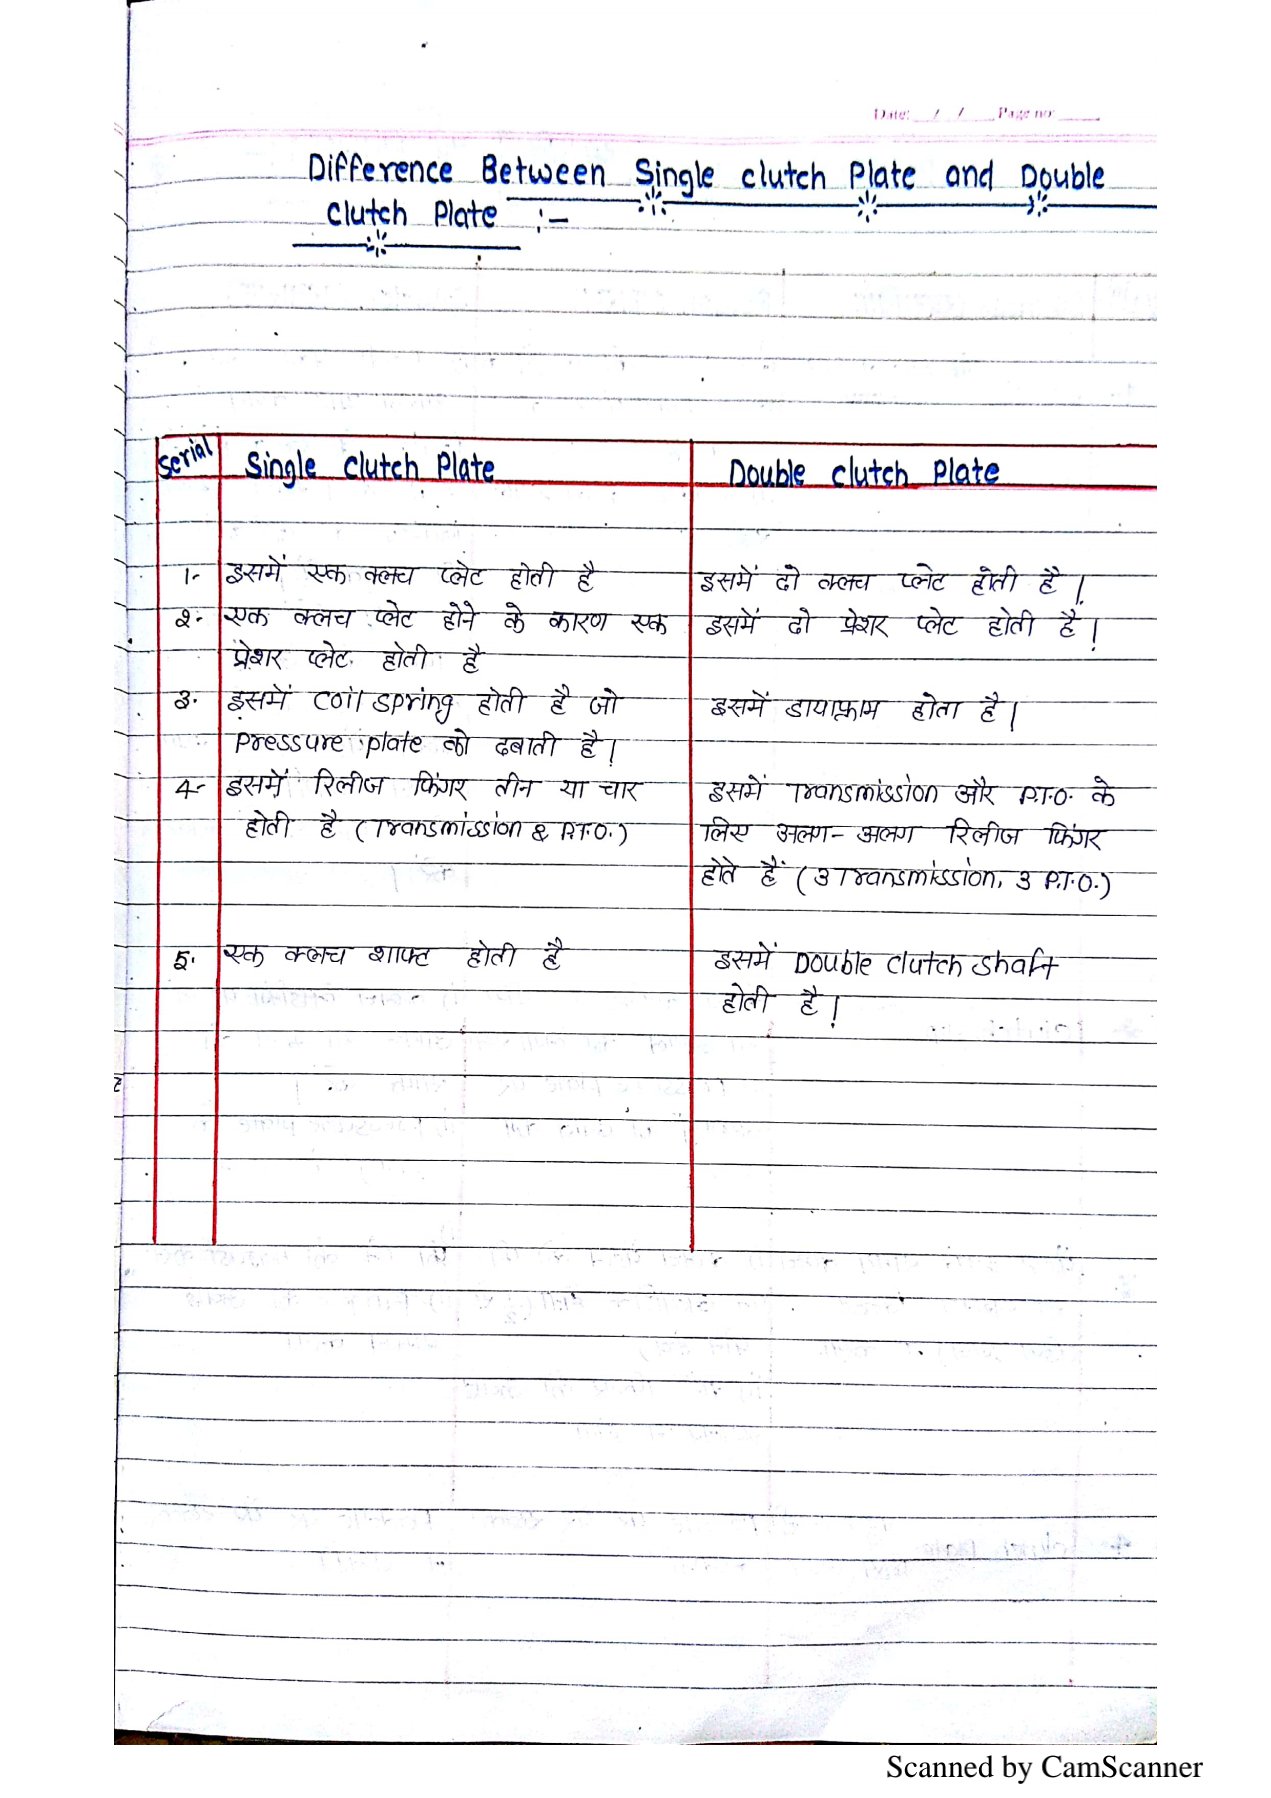 Date: __/__/__ Page no: ____
Difference Between Single clutch Plate and Double
clutch Plate :-
Serial Single clutch Plate Double clutch Plate
1- इसमें एक क्लच प्लेट होती है इसमें दो क्लच प्लेट होती है।
2- एक क्लच प्लेट होने के कारण एक इसमें दो प्रेशर प्लेट होती है।
प्रेशर प्लेट होती है
3. इसमें coil spring होती है जो इसमें डायाफ्राम होता है।
pressure plate को दबाती है।
4- इसमें रिलीज फिंगर तीन या चार इसमें Transmission और P.T.O. के
होती है (Transmission & P.T.O.) लिए अलग-अलग रिलीज फिंगर
होते हैं (3 Transmission, 3 P.T.O.)
5. एक क्लच शाफ्ट होती है इसमें Double clutch shaft
होती है।
Scanned by CamScanner